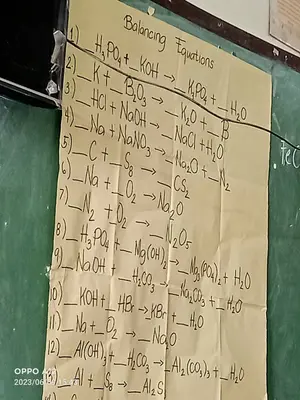 Balancing Equations
1) _H₃PO₄ + _KOH → _K₃PO₄ + _H₂O
2) _K + _B₂O₃ → _K₂O + _B
3) _HCl + NaOH → _NaCl + H₂O
4) _Na + NaNO₃ → _Na₂O + _N₂
5) _C + _S₈ → _CS₂
6) _Na + _O₂ → Na₂O
7) _N₂ + _O₂ → _N₂O₅
8) _H₃PO₄ + _Mg(OH)₂ → _Mg₃(PO₄)₂ + H₂O
9) _NaOH + _H₂CO₃ → _Na₂CO₃ + _H₂O
10) _KOH + _HBr → KBr + _H₂O
11) _Na + _O₂ → _Na₂O
12) _Al(OH)₃ + _H₂CO₃ → _Al₂(CO₃)₃ + _H₂O
_Al + _S₈ → _Al₂S
OPPO
2023/06